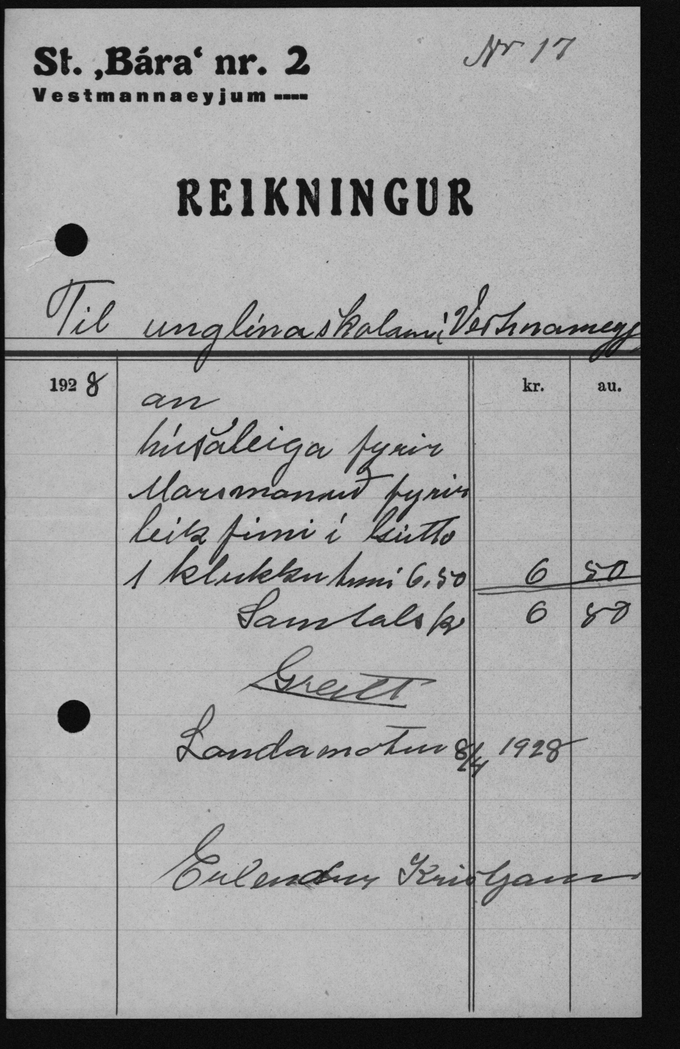 St. ‚Bára‘ nr. 2
Nr 17
Vestmannaeyjum
REIKNINGUR
Til unglinaskolans í
1928 kr. au.
an
húsáleiga fyrir
Marsmanuð fyrir
leikfimi í Gutto
1 klukkutimi 6,50 6 50
Samtals kr 6 50
Greitt
Landamotum 8/4 1928
Erlendur Kristjanss